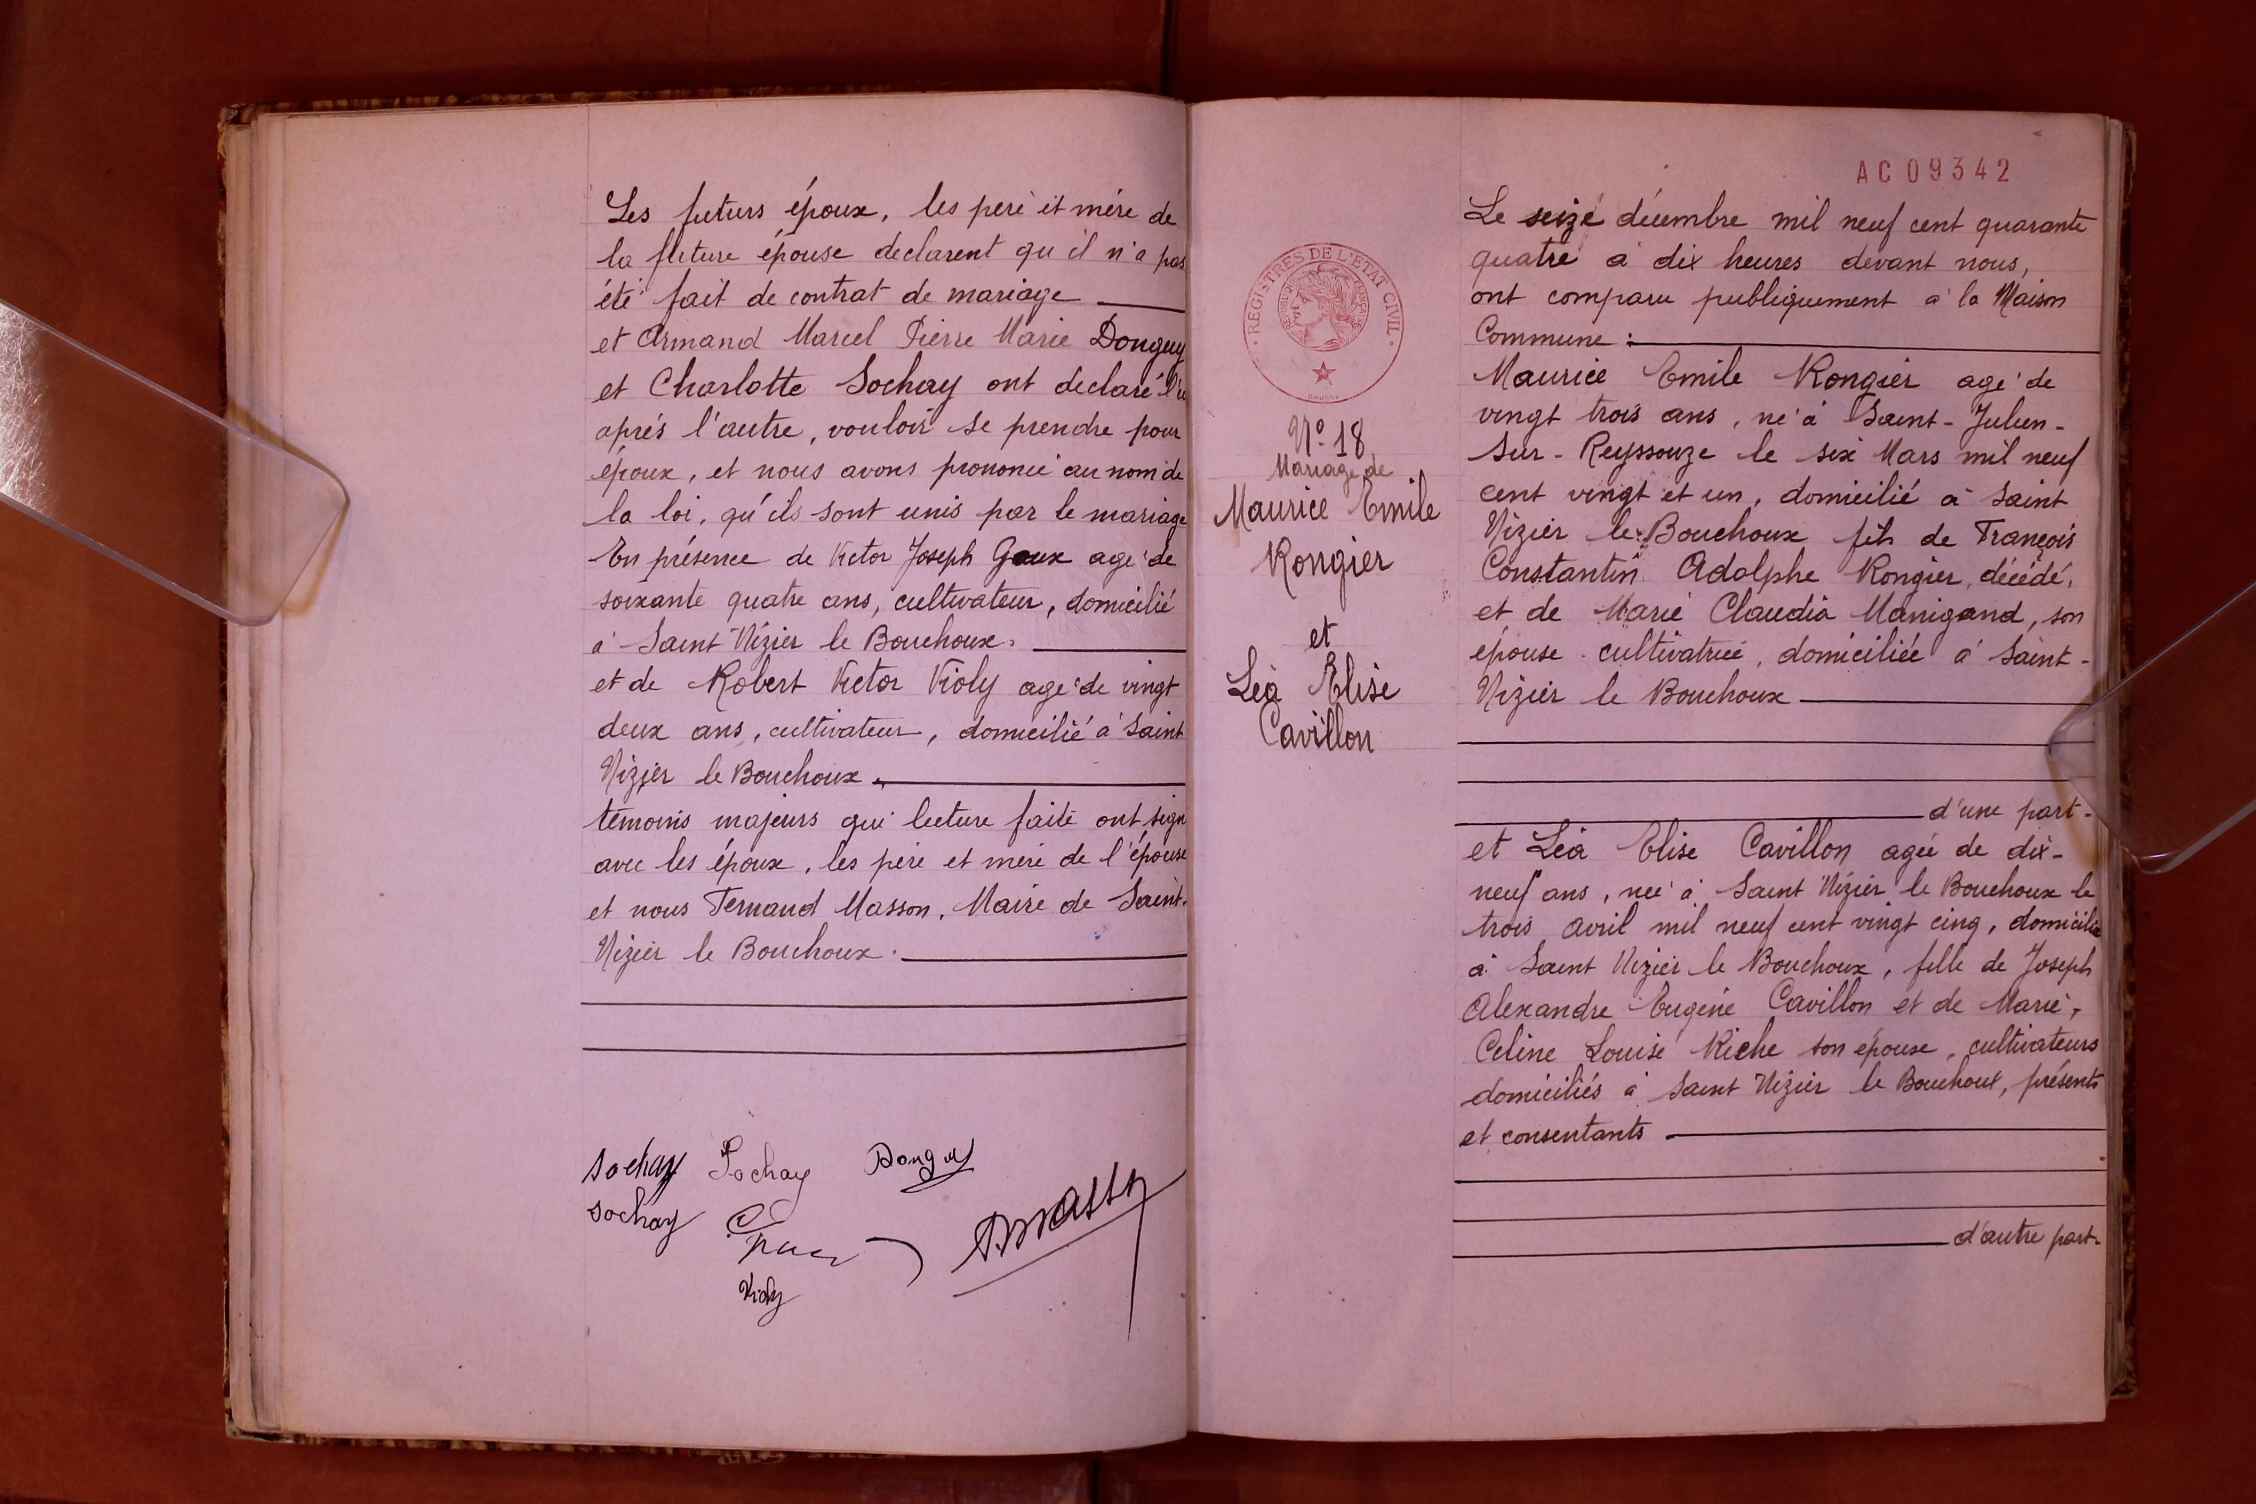 Les futurs époux, les père et mère de
la future épouse declarent qu'il n'a pas
été fait de contrat de mariage
et Armand Marcel Pierre Marie Donguy
et Charlotte Sochay ont declaré l'u
après l'autre, vouloir se prendre pour
époux, et nous avons prononcé au nom de
la loi, qu'ils sont unis par le mariage
En présence de Victor Joseph Goux agé de
soixante quatre ans, cultivateur, domicilié
à Saint Nizier le Bouchoux.
et de Robert Victor Violy agé de vingt
deux ans, cultivateur, domicilié à Saint
Nizier le Bouchoux.
témoins majeurs qui lecture faite ont sign
avec les époux, les père et mère de l'épouse
et nous Fernand Masson, Maire de Saint-
Nizier le Bouchoux.
Sochay Sochay Donguy
Sochay
Violy
AC 09342
REGISTRES DE L'ETAT CIVIL
N° 18
Mariage de
Maurice Emile
Rongier
et
Léa Elise
Cavillon
Le seize décembre mil neuf cent quarante
quatre à dix heures devant nous,
ont comparu publiquement à la Maison
Commune :
Maurice Emile Rongier agé de
vingt trois ans, né à Saint-Julien-
Sur-Reyssouze le six Mars mil neuf
cent vingt et un, domicilié à Saint
Nizier le Bouchoux fils de François
Constantin Adolphe Rongier, décédé,
et de Marie Claudia Manigand, son
épouse cultivatrice, domiciliée à Saint-
Nizier le Bouchoux
d'une part-
et Léa Elise Cavillon agée de dix-
neuf ans, née à Saint Nizier le Bouchoux le
trois avril mil neuf cent vingt cinq, domiciliée
à Saint Nizier le Bouchoux, fille de Joseph
Alexandre Eugène Cavillon et de Marie,
Celine Louise Riche son épouse, cultivateurs
domiciliés à Saint Nizier le Bouchoux, présents
et consentants
d'autre part-